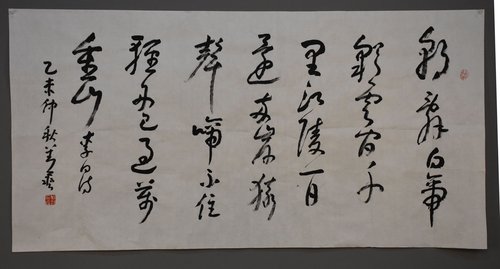 朝辭白帝
彩雲間千
里江陵一日
還兩岸猿
聲啼不住
輕舟已過萬
重山 李白詩
乙未仲秋